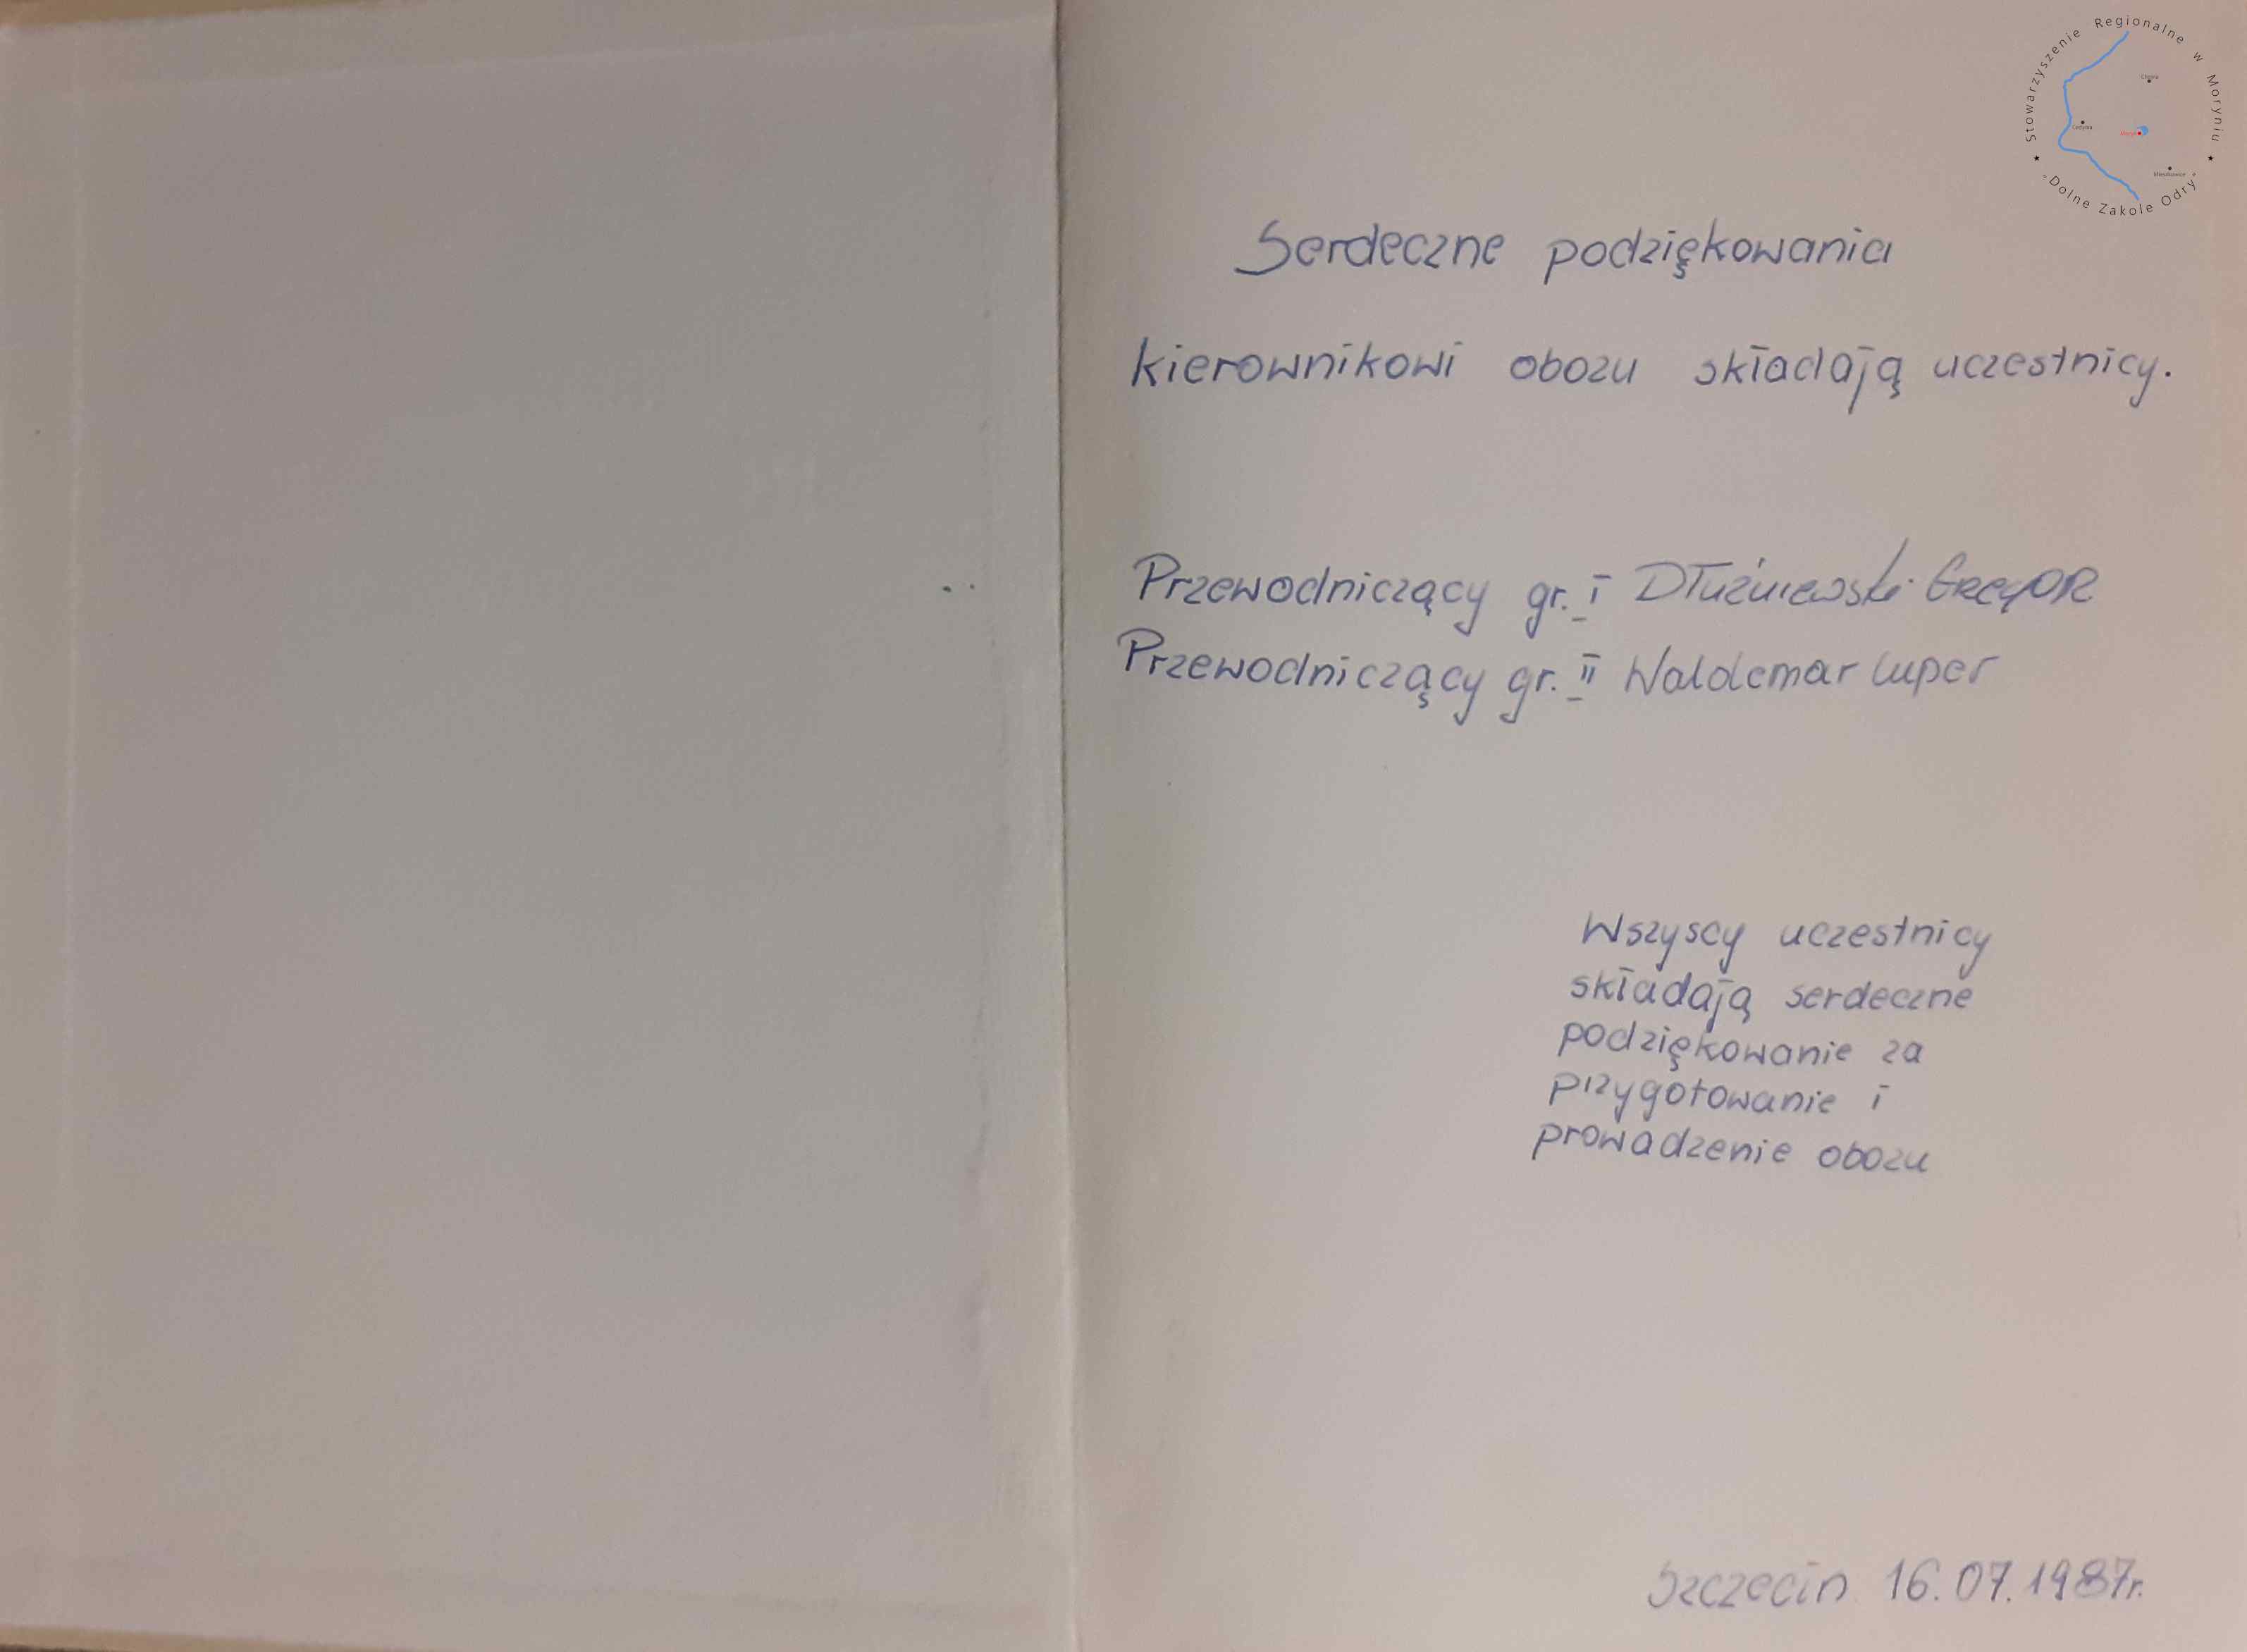 Stowarzyszenie Regionalne w Moryniu
"Dolne Zakole Odry"
Chojna
Cedynia
Moryń
Mieszkowice
Serdeczne podziękowania
kierownikowi obozu składają uczestnicy.
Przewodniczący gr. I Dłużniewski
Przewodniczący gr. II Waldemar Luper
Wszyscy uczestnicy
składają serdeczne
podziękowanie za
przygotowanie i
prowadzenie obozu
Szczecin 16.07.1987r.